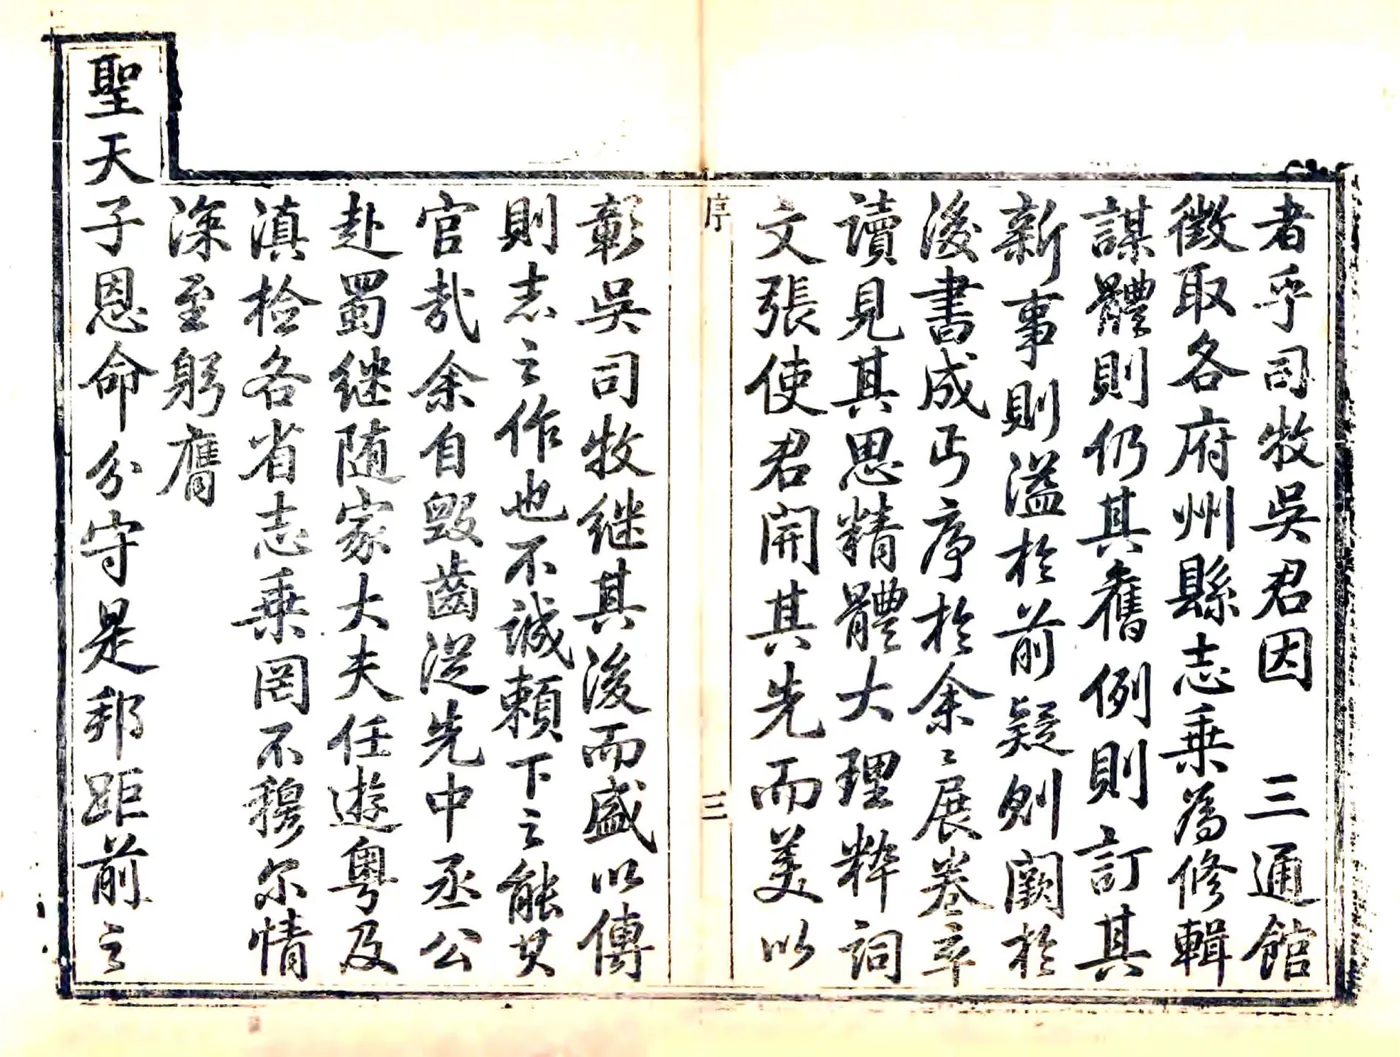 者乎司牧吳君因　三通館
徵取各府州縣志乗為修輯
謀體則仍其舊例則訂其
新事則溢於前疑則闕於
後書成丐序於余〻展卷卒
讀見其思精體大理粹詞
文張使君開其先而美以
序
三
彰吳司牧继其後而盛以傳
則志之作也不誠頼下之能其
官哉余自毀齒従先中丞公
赴蜀继随家大夫任遊粤及
滇检各省志乗罔不穆尔情
深至躬膺
聖天子恩命分守是邦距前之